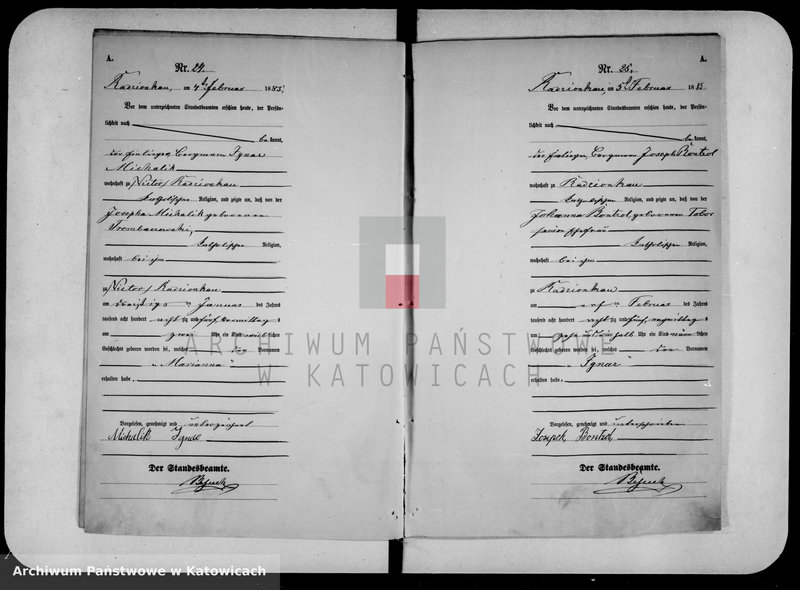 A.
Nr. 24.
Radzionkau, am 4ten Februar 1885.
Vor dem unterzeichneten Standesbeamten erschien heute, der Persön-
lichkeit nach
be kannt,
Bergmann Ignac
Michalik
wohnhaft zu Radzionkau
katholischer Religion, und zeigte an, daß von der
Josepha Michalik geborenen
katholischer Religion,
wohnhaft bei ihm
zu Radzionkau
am Januar des Jahres
tausend acht hundert achtzig und fünf, Vormittags
um zwei Uhr ein Kind weiblichen
Geschlechts geboren worden sei, welches den Vornamen
Marianna
erhalten habe.
Vorgelesen, genehmigt und
Michalik Ignac
Der Standesbeamte.
A.
Nr. 25.
Radzionkau, am 5ten Februar 1885
Vor dem unterzeichneten Standesbeamten erschien heute, der Persön-
lichkeit nach
be kannt,
Bergmann Joseph Bontzol
wohnhaft zu Radzionkau
katholischer Religion, und zeigte an, daß von der
Johanna geborenen
seiner Ehefrau
katholischer Religion,
wohnhaft bei ihm
zu Radzionkau
am Februar des Jahres
tausend acht hundert achtzig und fünf, Nachmittags
um Uhr ein Kind männlichen
Geschlechts geboren worden sei, welches den Vornamen
Ignac
erhalten habe.
Vorgelesen, genehmigt und unterschrieben
Der Standesbeamte.
ARCHIWUM PAŃSTWOWE
W KATOWICACH
Archiwum Państwowe w Katowicach